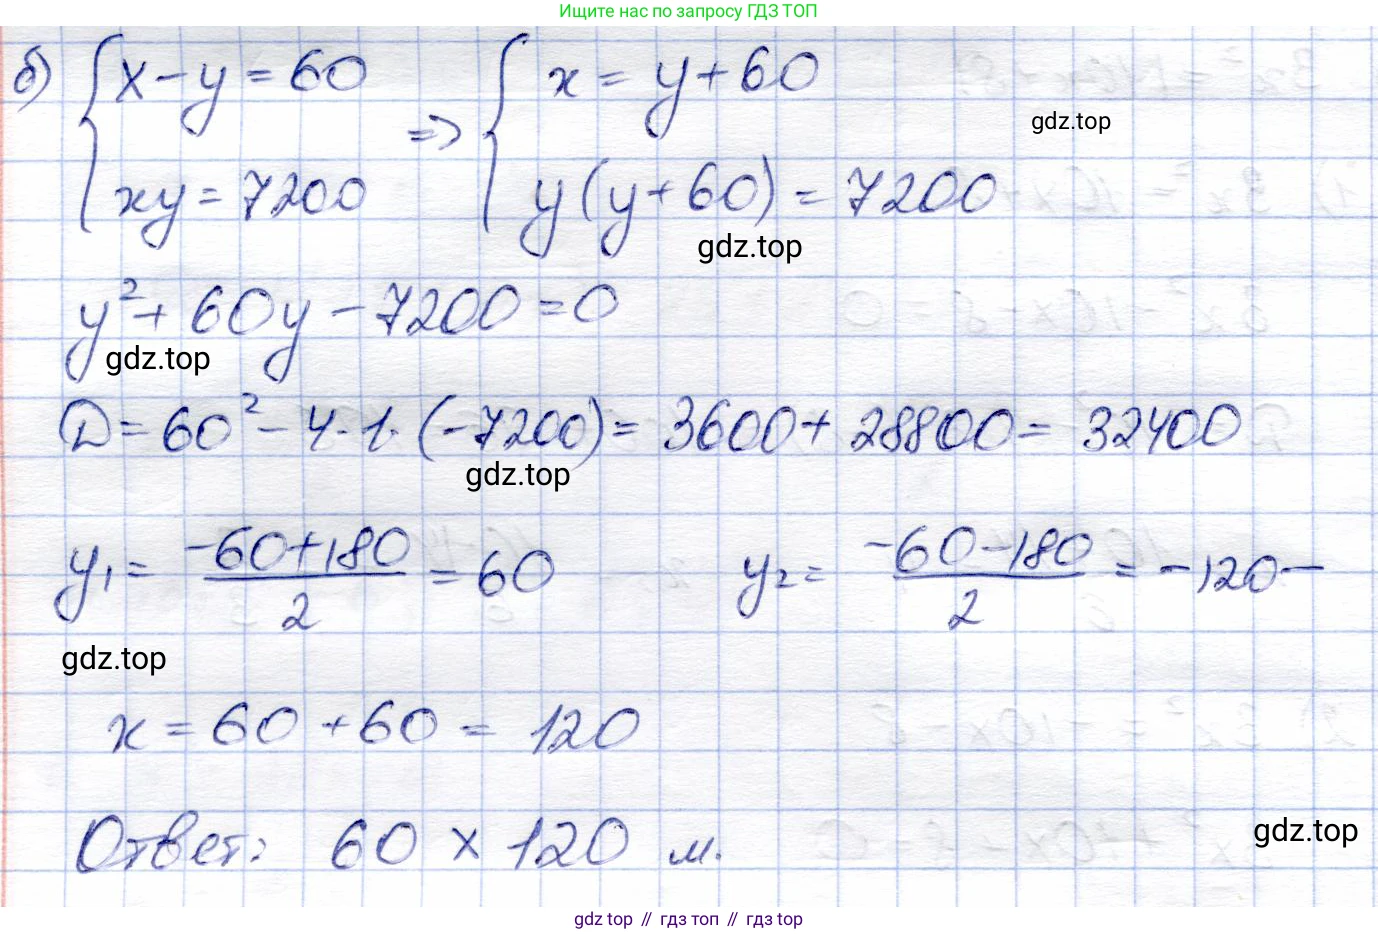 Ищите нас по запросу ГДЗ ТОП
б) { x - y = 60 => { x = y + 60
gdz.top
xy = 7200 y(y + 60) = 7200
gdz.top
y² + 60y - 7200 = 0
gdz.top
D = 60² - 4·1·(-7200) = 3600 + 28800 = 32400
gdz.top
y₁ = (-60+180)/2 = 60 y₂ = (-60-180)/2 = -120 -
gdz.top
x = 60 + 60 = 120
Ответ: 60 x 120 м.
gdz.top
gdz.top // гдз топ // гдз top